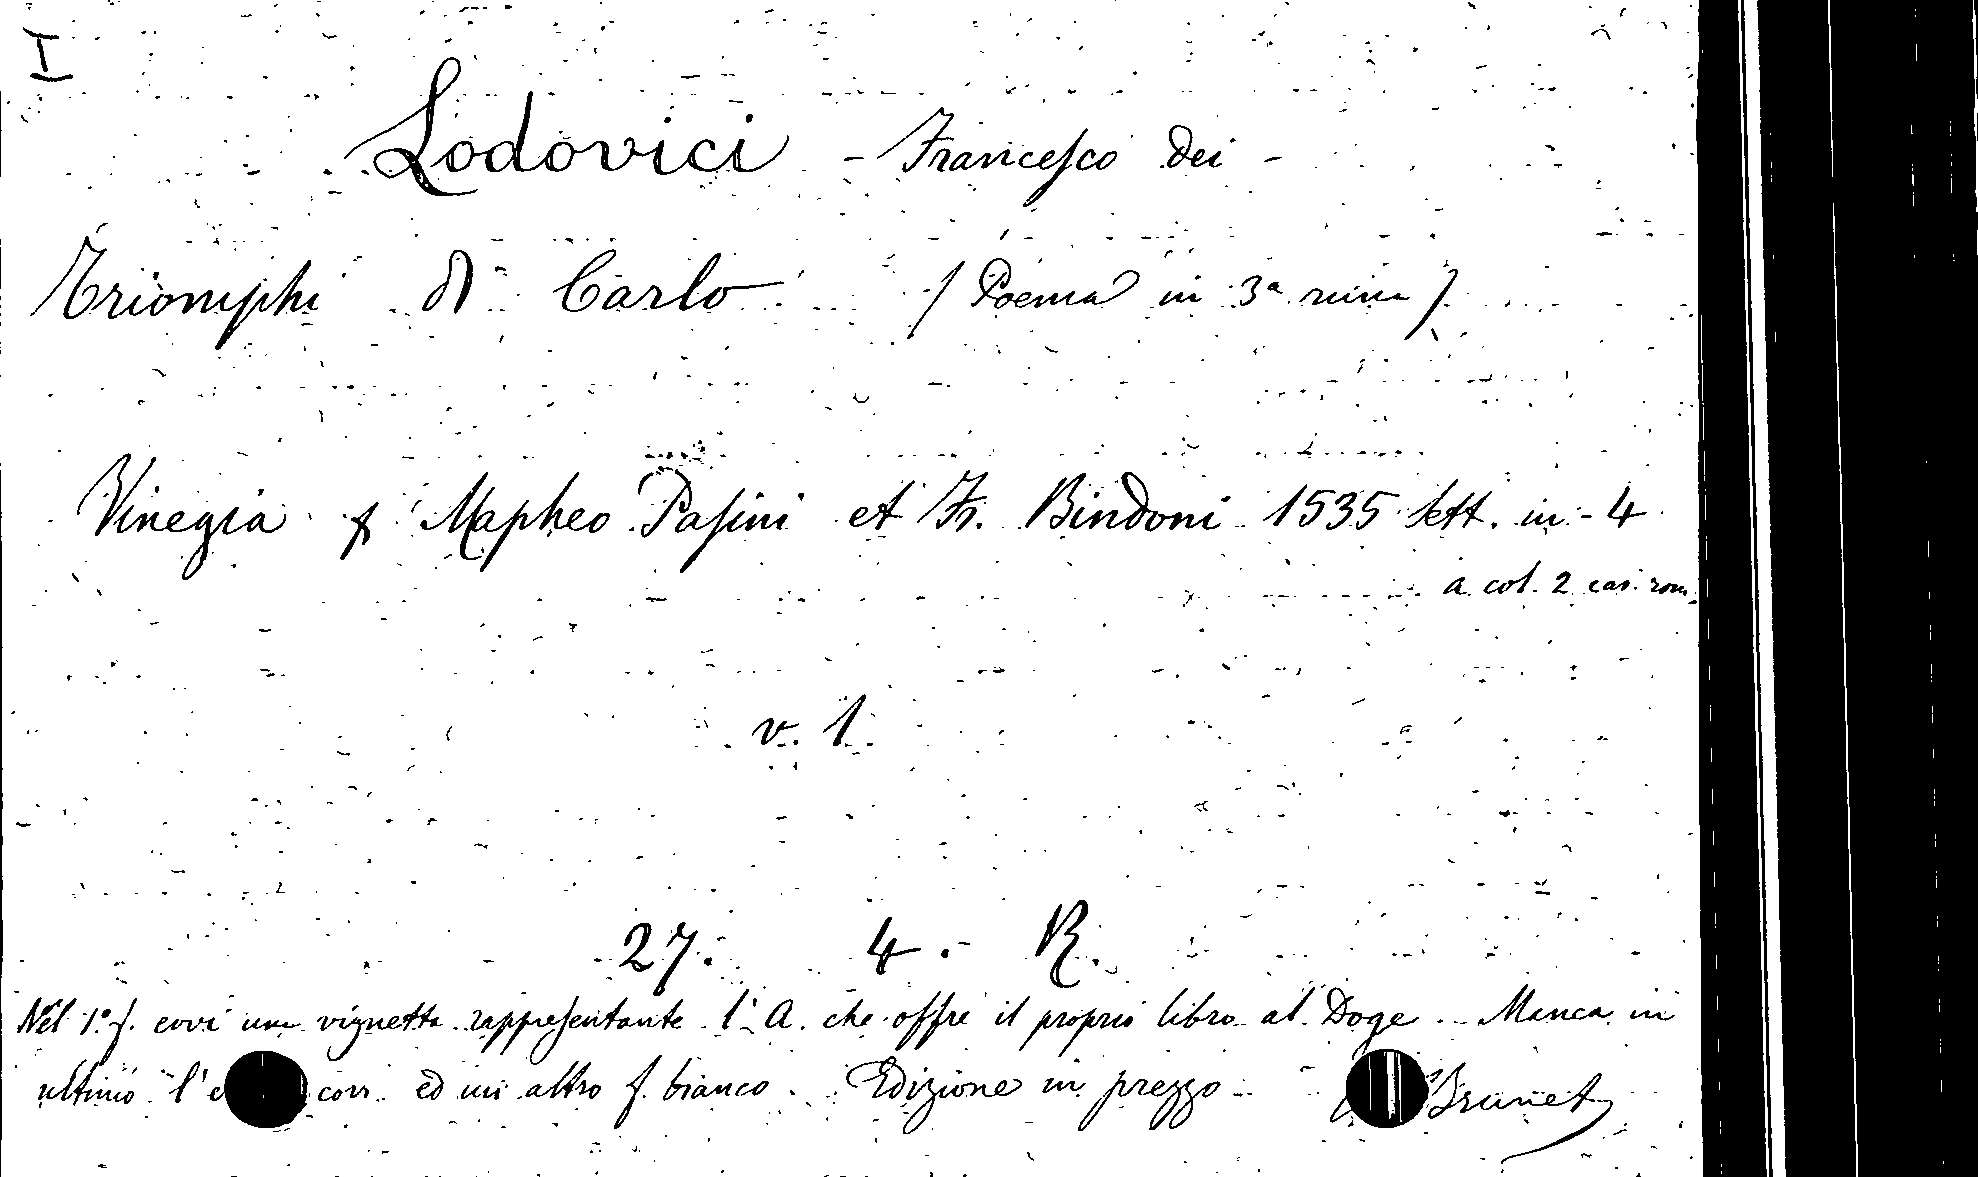 I
Lodovici - Francesco dei -
Triomphi di Carlo (Poema in 3ª rima)
Vinegia p Mapheo Pasini et Fr. Bindoni 1535 sett. in-4
a col. 2 car. rom.
v. 1
27. 4. R.
Nel 1.º f. evvi una vignetta rappresentante l'A. che offre il proprio libro al Doge. - Manca in
ultimo l'e corr. ed un altro f. bianco. Edizione in prezzo - Brunet